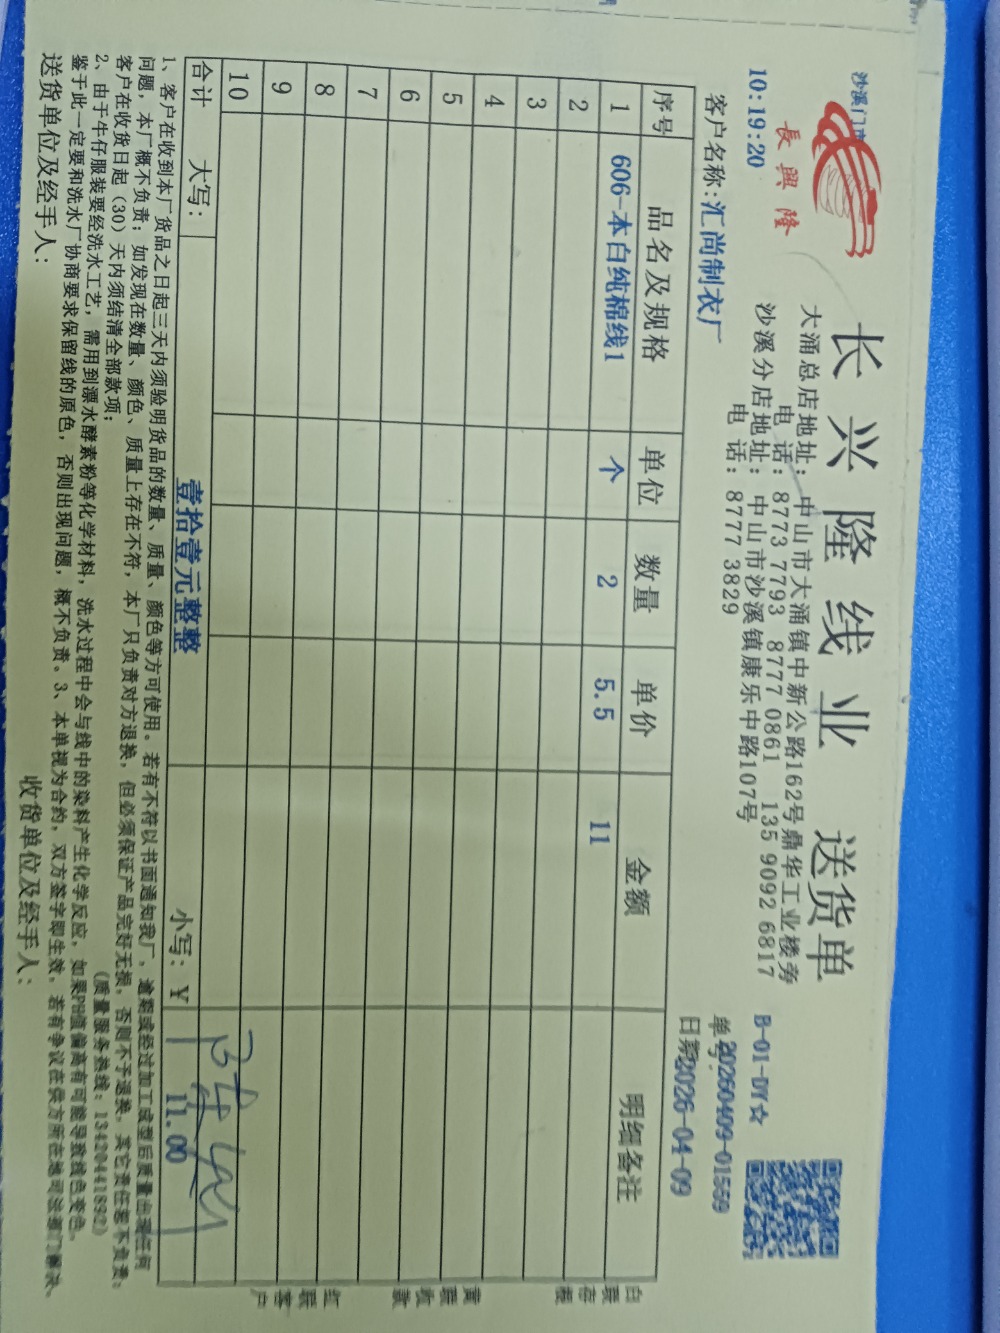 沙溪门市
長興隆
长兴隆线业 送货单
B-01-DY☆
大涌总店地址：中山市大涌镇中新公路162号鼎华工业楼旁
电 话：8773 7793 8777 0861 135 9092 6817
10:19:20
沙溪分店地址：中山市沙溪镇康乐中路107号
电 话：8777 3829
单号：20260409-01569
客户名称：汇尚制衣厂
日期2026-04-09
序号 品名及规格 单位 数量 单价 金额 明细备注
1 606-本白纯棉线1 个 2 5.5 11
2
3
4
5
6
7
8
9
10
合计 大写： 壹拾壹元整整 小写：￥ 11.00
白联存根
黄联收款
红联客户
1、客户在收到本厂货品之日起三天内须验明货品的数量、质量、颜色等方可使用。若有不符以书面通知我厂，逾期或经过加工成型后质量出现任何
问题，本厂概不负责；如发现在数量、颜色、质量上存在不符，本厂只负责对方退换，但必须保证产品完好无损，否则不予退换，其它责任概不负责；
客户在收货日起（30）天内须结清全部款项； (质量服务热线：13420441892)
2、由于牛仔服装要经洗水工艺，需用到漂水酵素粉等化学材料，洗水过程中会与线中的染料产生化学反应，如果PH值偏高有可能导致线色变色。
鉴于此一定要和洗水厂协商要求保留线的原色，否则出现问题，概不负责。3、本单视为合约，双方签字即生效，若有争议在供方所在地司法部门解决。
送货单位及经手人： 收货单位及经手人：